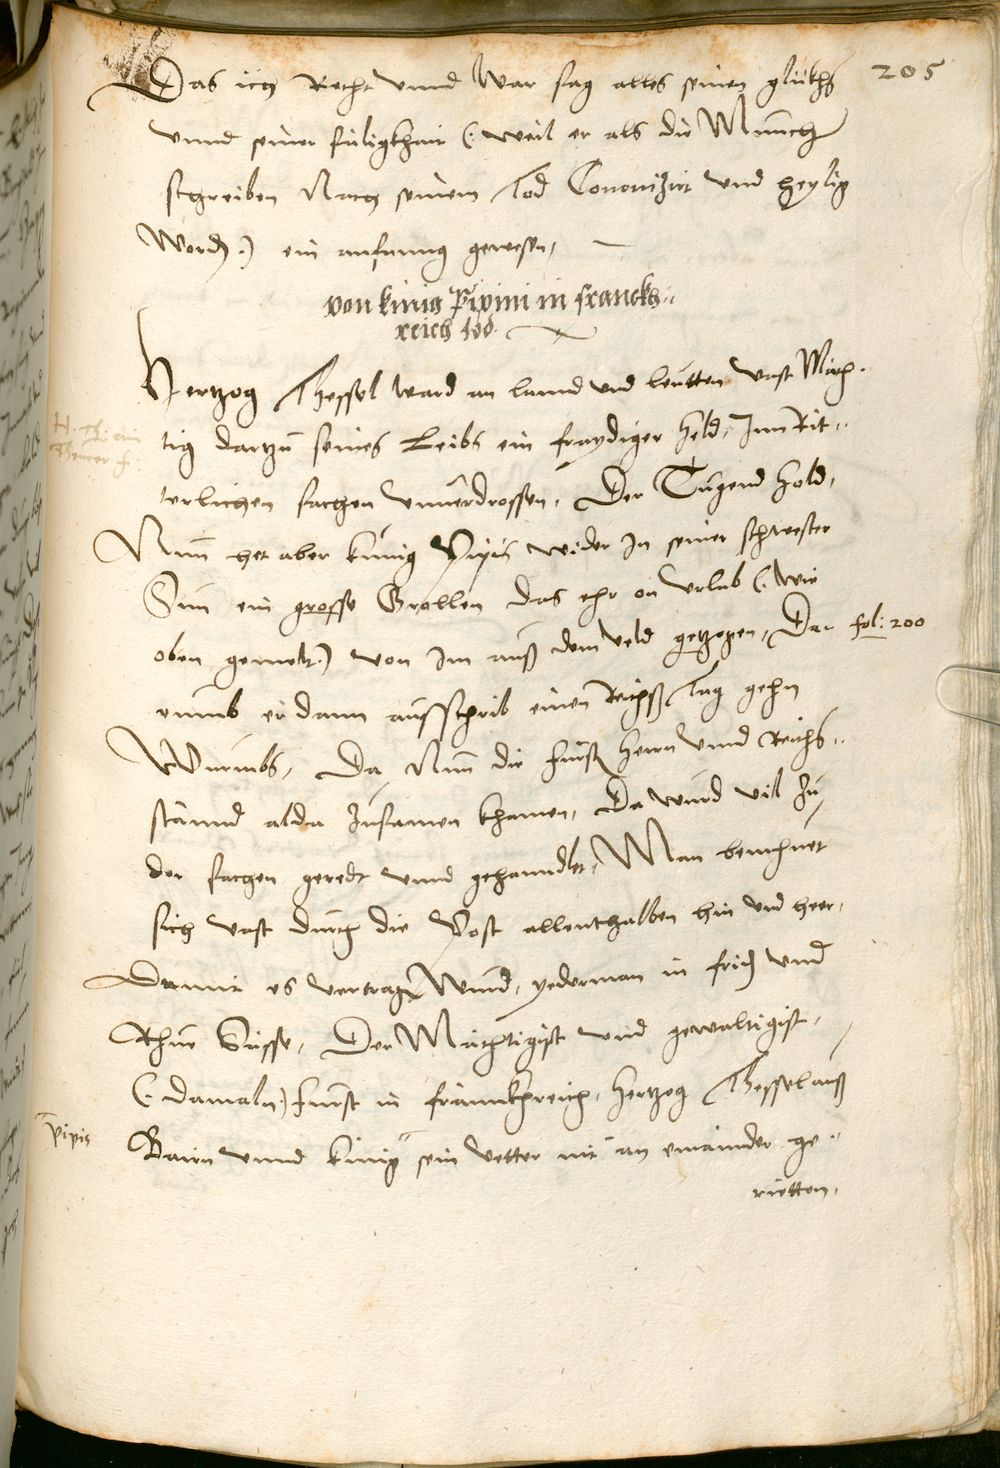 205
Das ich Recht unnd War sag alles seines glükhs
unnd seiner säligkhait (: weil er als die Münnch
schreiben Nach seinem Tod Canonizirt und heylig
Word.) ein anfanng gewesen,
von künig Pipini in franckh=
reich tod
Hertzog Thessel ward an lannd und leutten vast Mäch=
tig dartzu seines Leibs ein fraydiger held, Inn Rit=
H. Th: ein
Theurer f.
terlichen sachen unnverdrossen, Der Tugend hold,
Nun het aber künig Pipis wider In seiner schwester
Sun ein grosse Grollen das ehr on Urlab (: wie
oben gemelt:) von Im auß dem veld getzogen, Dar
fol: 200
umb er dann ausschrib einen Reichß Tag gehn
Wurmbs, Da Nun die fürst herrn unnd Reichs=
stännd alda zusamen khamen, Da wurd vil zu
der sachen geredt unnd gehanndlet, Man
sich vast durch die Post allenthalben hin und heer,
Damit es vertragen Wurd, yederman in frid und
Rhue Sässe, Der Mächtigist und gewaltigist,
(: damaln:) Fürst in frannkhreich, hertzog Thessel auß
Pipis
Bairn unnd künig sein vetter nit an einannder ge=
rietten,